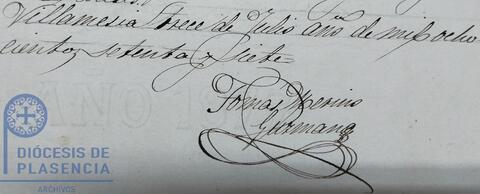 Villamesia trece de Julio año de mil ocho
cientos setenta y siete
Tomas Merino
Guzman
DIÓCESIS DE
PLASENCIA
ARCHIVOS